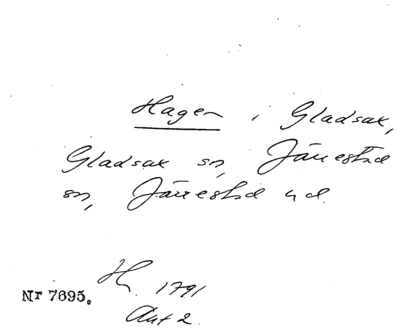 Hagen i Gladsax,
Gladsax sn, Järrestad
sn, Järrestad hd.
H. 1791
Nr 7695.
Akt 2.